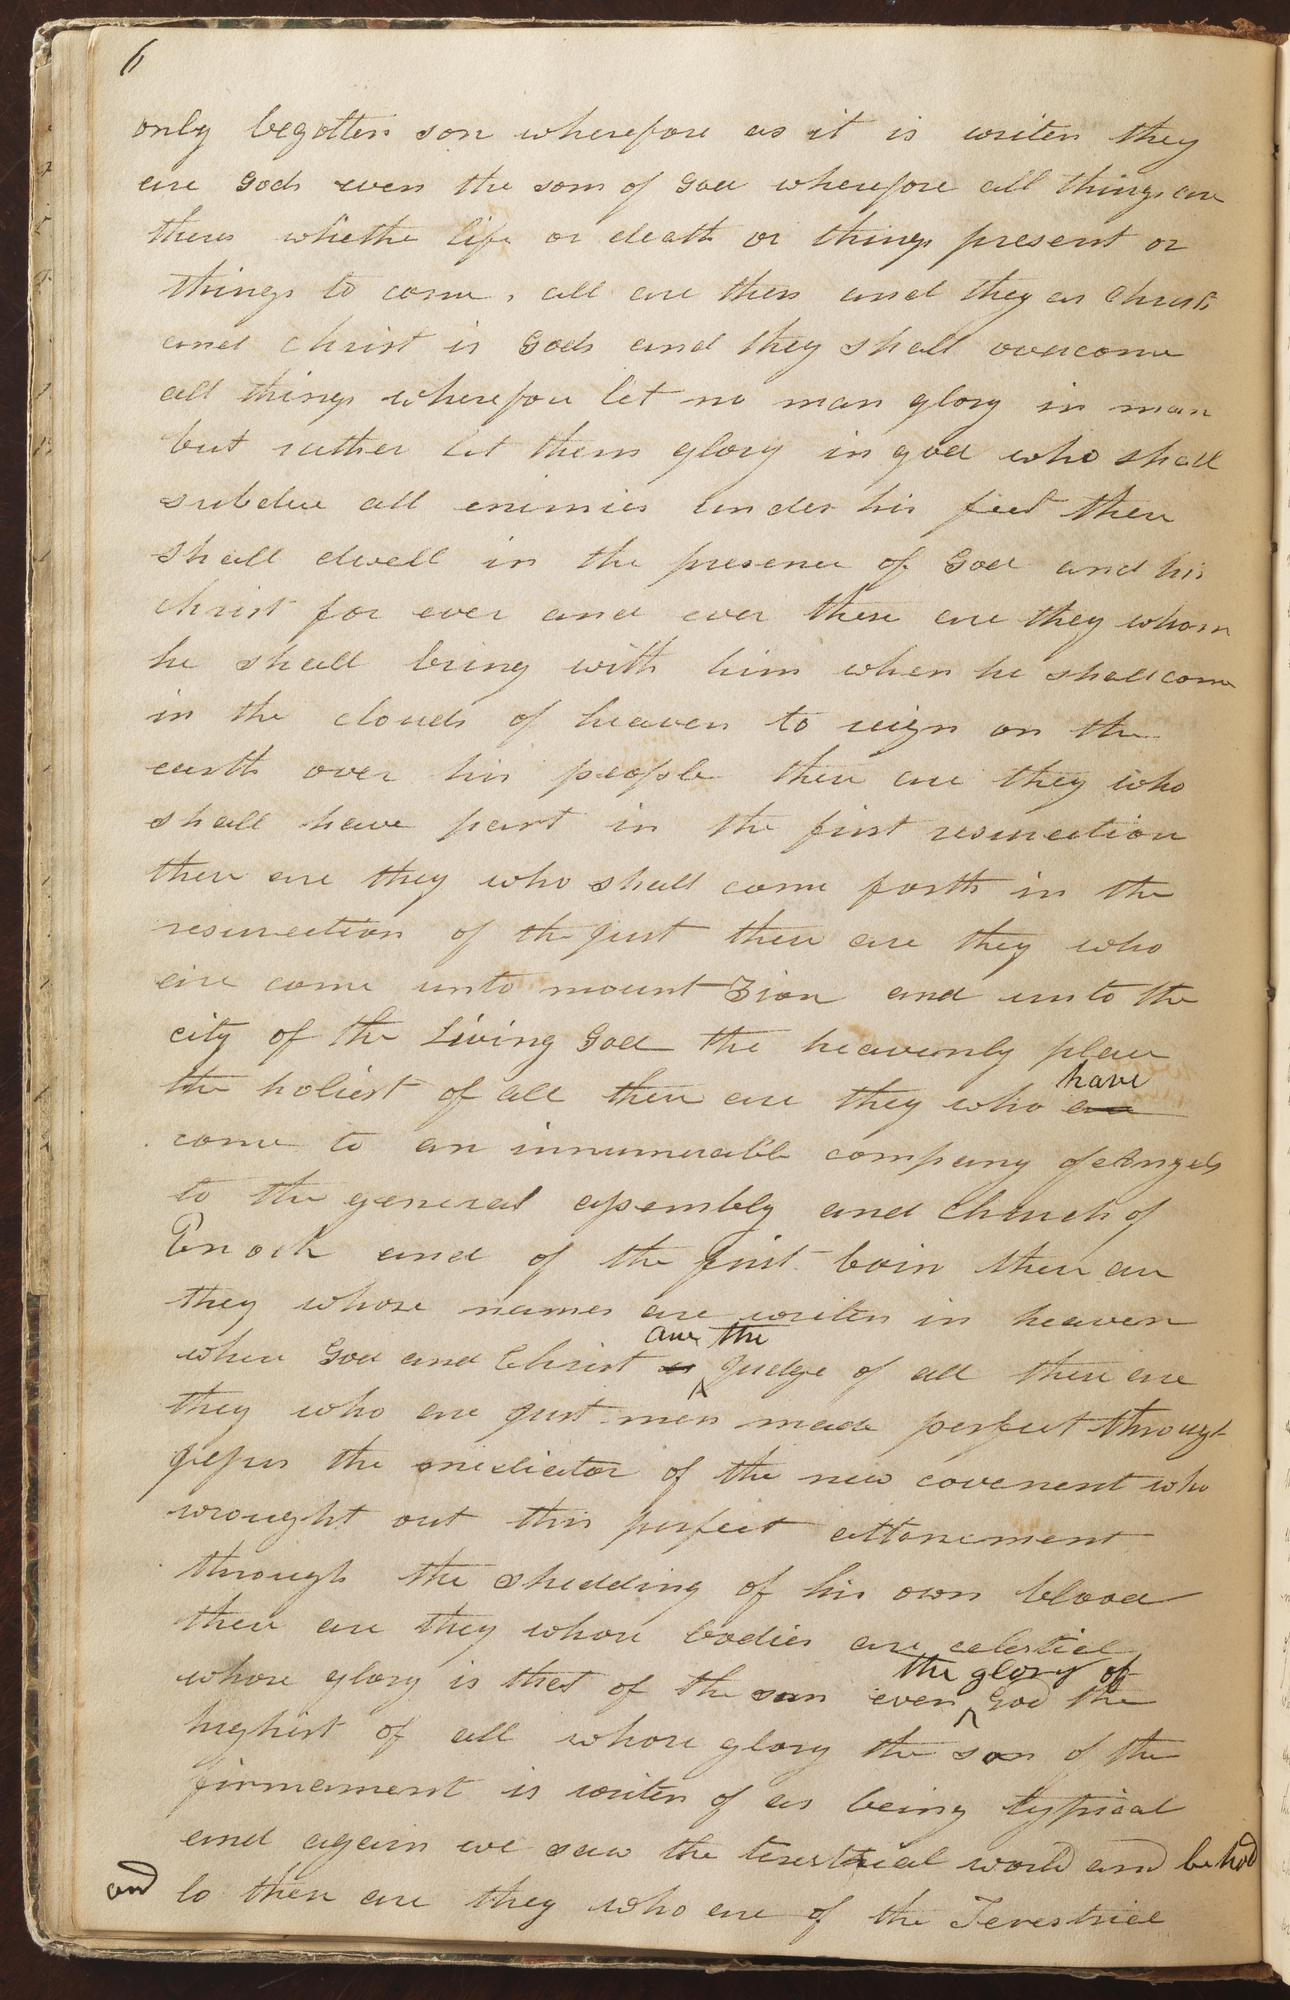 6
only begotten son wherefore as it is writen they
are Gods even the sons of God wherefore all things are
theirs whethe life or death or things present or
things to come, all are thers and they are christs
and christ is Gods and they shall overcome
all things wherefore let no man glory in man
but rather let them glory in god who shall
subdue all enimies under his feet these
shall dwell in the presence of God and his
christ for ever and ever these are they whom
he shall bring with him when he shall come
in the clouds of heaven to reign on the
earth over his people these are they who
shall have part in the first resurection
these are they who shall come forth in the
resurrection of the just these are they who
are come unto mount Zion and unto the
city of the Living God the heavenly place
have
the holiest of all these are they who are
come to an innumerable company of Angels
to the general assembly and Church of
Enoch and of the first born these are
they whose names are writen in heaven
are the
where God and Christ is judge of all these are
they who are just men made perfect through
jesus the mediator of the new covenent who
wrought out this perfect attonement
through the shedding of his own blood
these are they whose bodies are celestial
the glory of
whose glory is that of the sun even God the
highest of all whose glory the son of the
firmament is writen of as being typical
and again we saw the terestrial world and behold
and lo these are they who are of the Terestriel